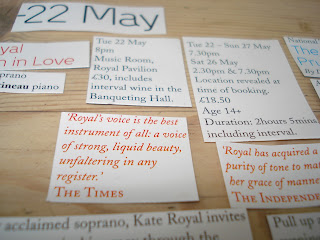 -22 May
Royal
n in Love
oprano
rtineau piano
Tue 22 May
8pm
Music Room,
Royal Pavilion
£30, includes
interval wine in the
Banqueting Hall.
Tue 22 – Sun 27 May
7.30pm
Sat 26 May
2.30pm & 7.30pm
Location revealed at
time of booking.
£18.50
Age 14+
Duration: 2hours 5mins
including interval.
National
The
Pr
By
'Royal's voice is the best
instrument of all: a voice
of strong, liquid beauty,
unfaltering in any
register.'
THE TIMES
'Royal has acquired a
purity of tone to mat
her grace of manne
THE INDEPEND
acclaimed soprano, Kate Royal invites
through the
Pull up a